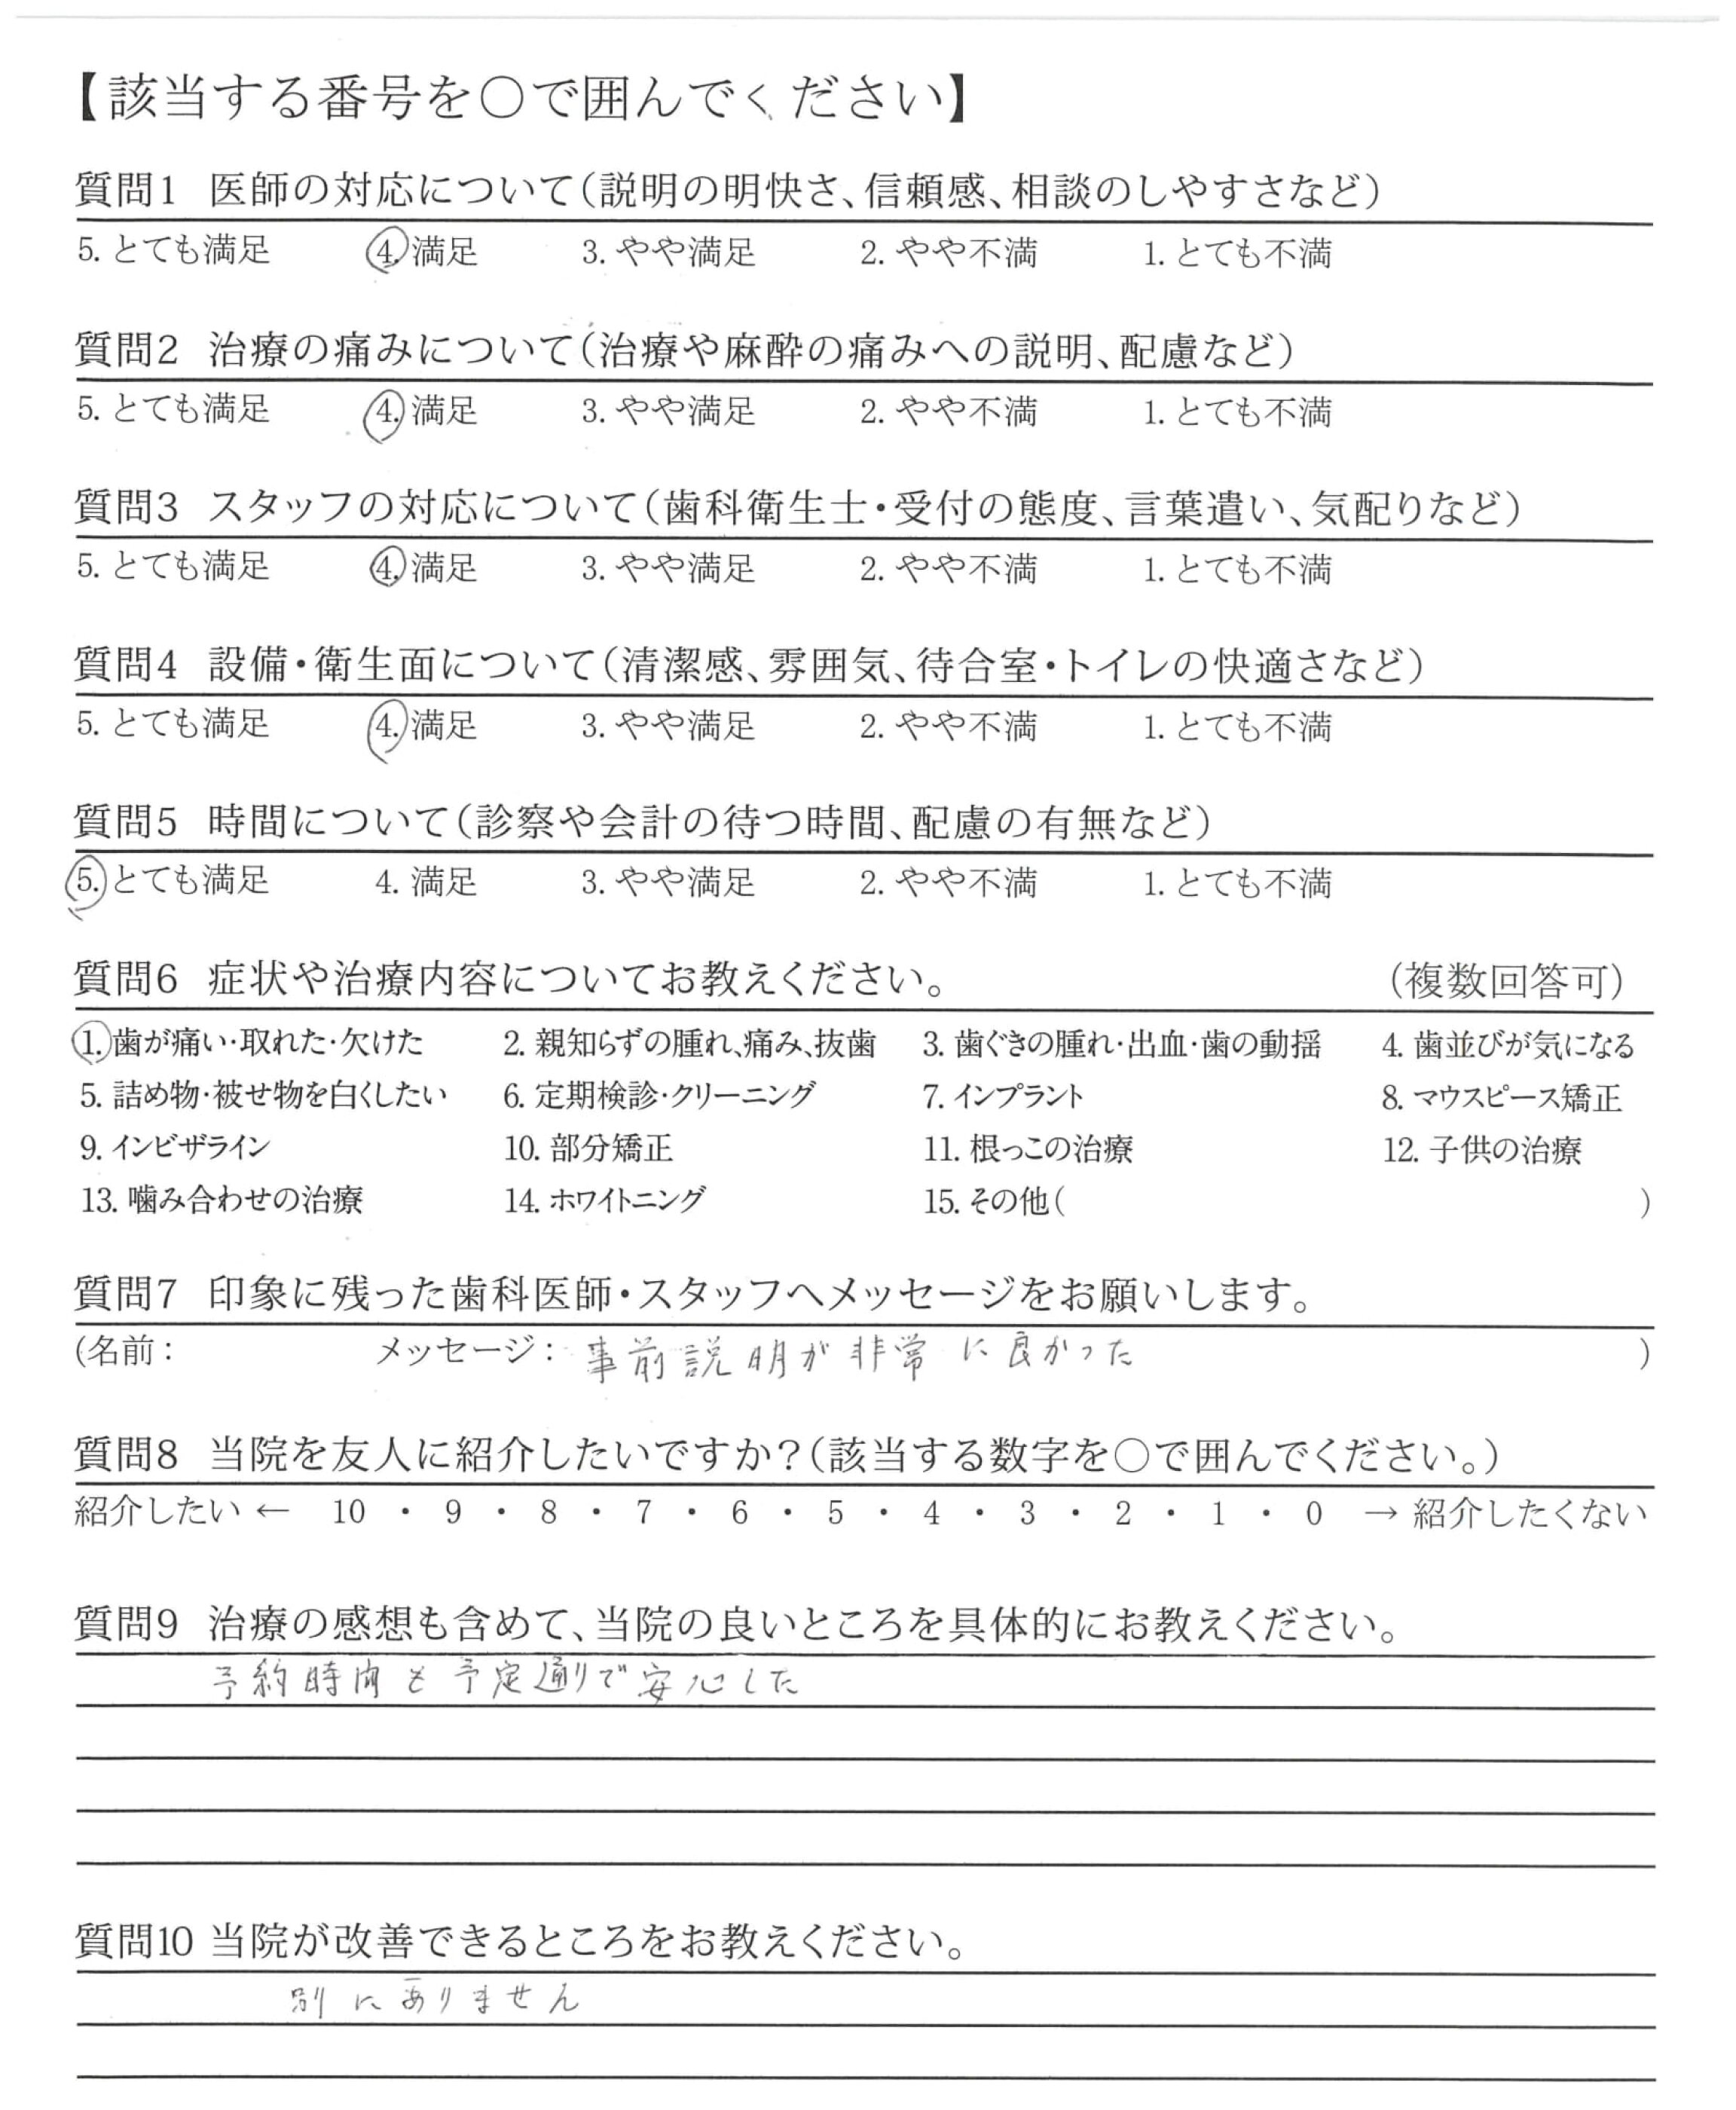 【該当する番号を○で囲んでください】
質問1 医師の対応について(説明の明快さ、信頼感、相談のしやすさなど)
5. とても満足 4. 満足 3. やや満足 2. やや不満 1. とても不満
質問2 治療の痛みについて(治療や麻酔の痛みへの説明、配慮など)
5. とても満足 4. 満足 3. やや満足 2. やや不満 1. とても不満
質問3 スタッフの対応について(歯科衛生士・受付の態度、言葉遣い、気配りなど)
5. とても満足 4. 満足 3. やや満足 2. やや不満 1. とても不満
質問4 設備・衛生面について(清潔感、雰囲気、待合室・トイレの快適さなど)
5. とても満足 4. 満足 3. やや満足 2. やや不満 1. とても不満
質問5 時間について(診察や会計の待つ時間、配慮の有無など)
5. とても満足 4. 満足 3. やや満足 2. やや不満 1. とても不満
質問6 症状や治療内容についてお教えください。 (複数回答可)
1. 歯が痛い・取れた・欠けた 2. 親知らずの腫れ、痛み、抜歯 3. 歯ぐきの腫れ・出血・歯の動揺 4. 歯並びが気になる
5. 詰め物・被せ物を白くしたい 6. 定期検診・クリーニング 7. インプラント 8. マウスピース矯正
9. インビザライン 10. 部分矯正 11. 根っこの治療 12. 子供の治療
13. 噛み合わせの治療 14. ホワイトニング 15. その他( )
質問7 印象に残った歯科医師・スタッフへメッセージをお願いします。
(名前: メッセージ: 事前説明が非常に良かった )
質問8 当院を友人に紹介したいですか?(該当する数字を○で囲んでください。)
紹介したい ← 10 ・ 9 ・ 8 ・ 7 ・ 6 ・ 5 ・ 4 ・ 3 ・ 2 ・ 1 ・ 0 → 紹介したくない
質問9 治療の感想も含めて、当院の良いところを具体的にお教えください。
予約時間も予定通りで安心した
質問10 当院が改善できるところをお教えください。
別にありません